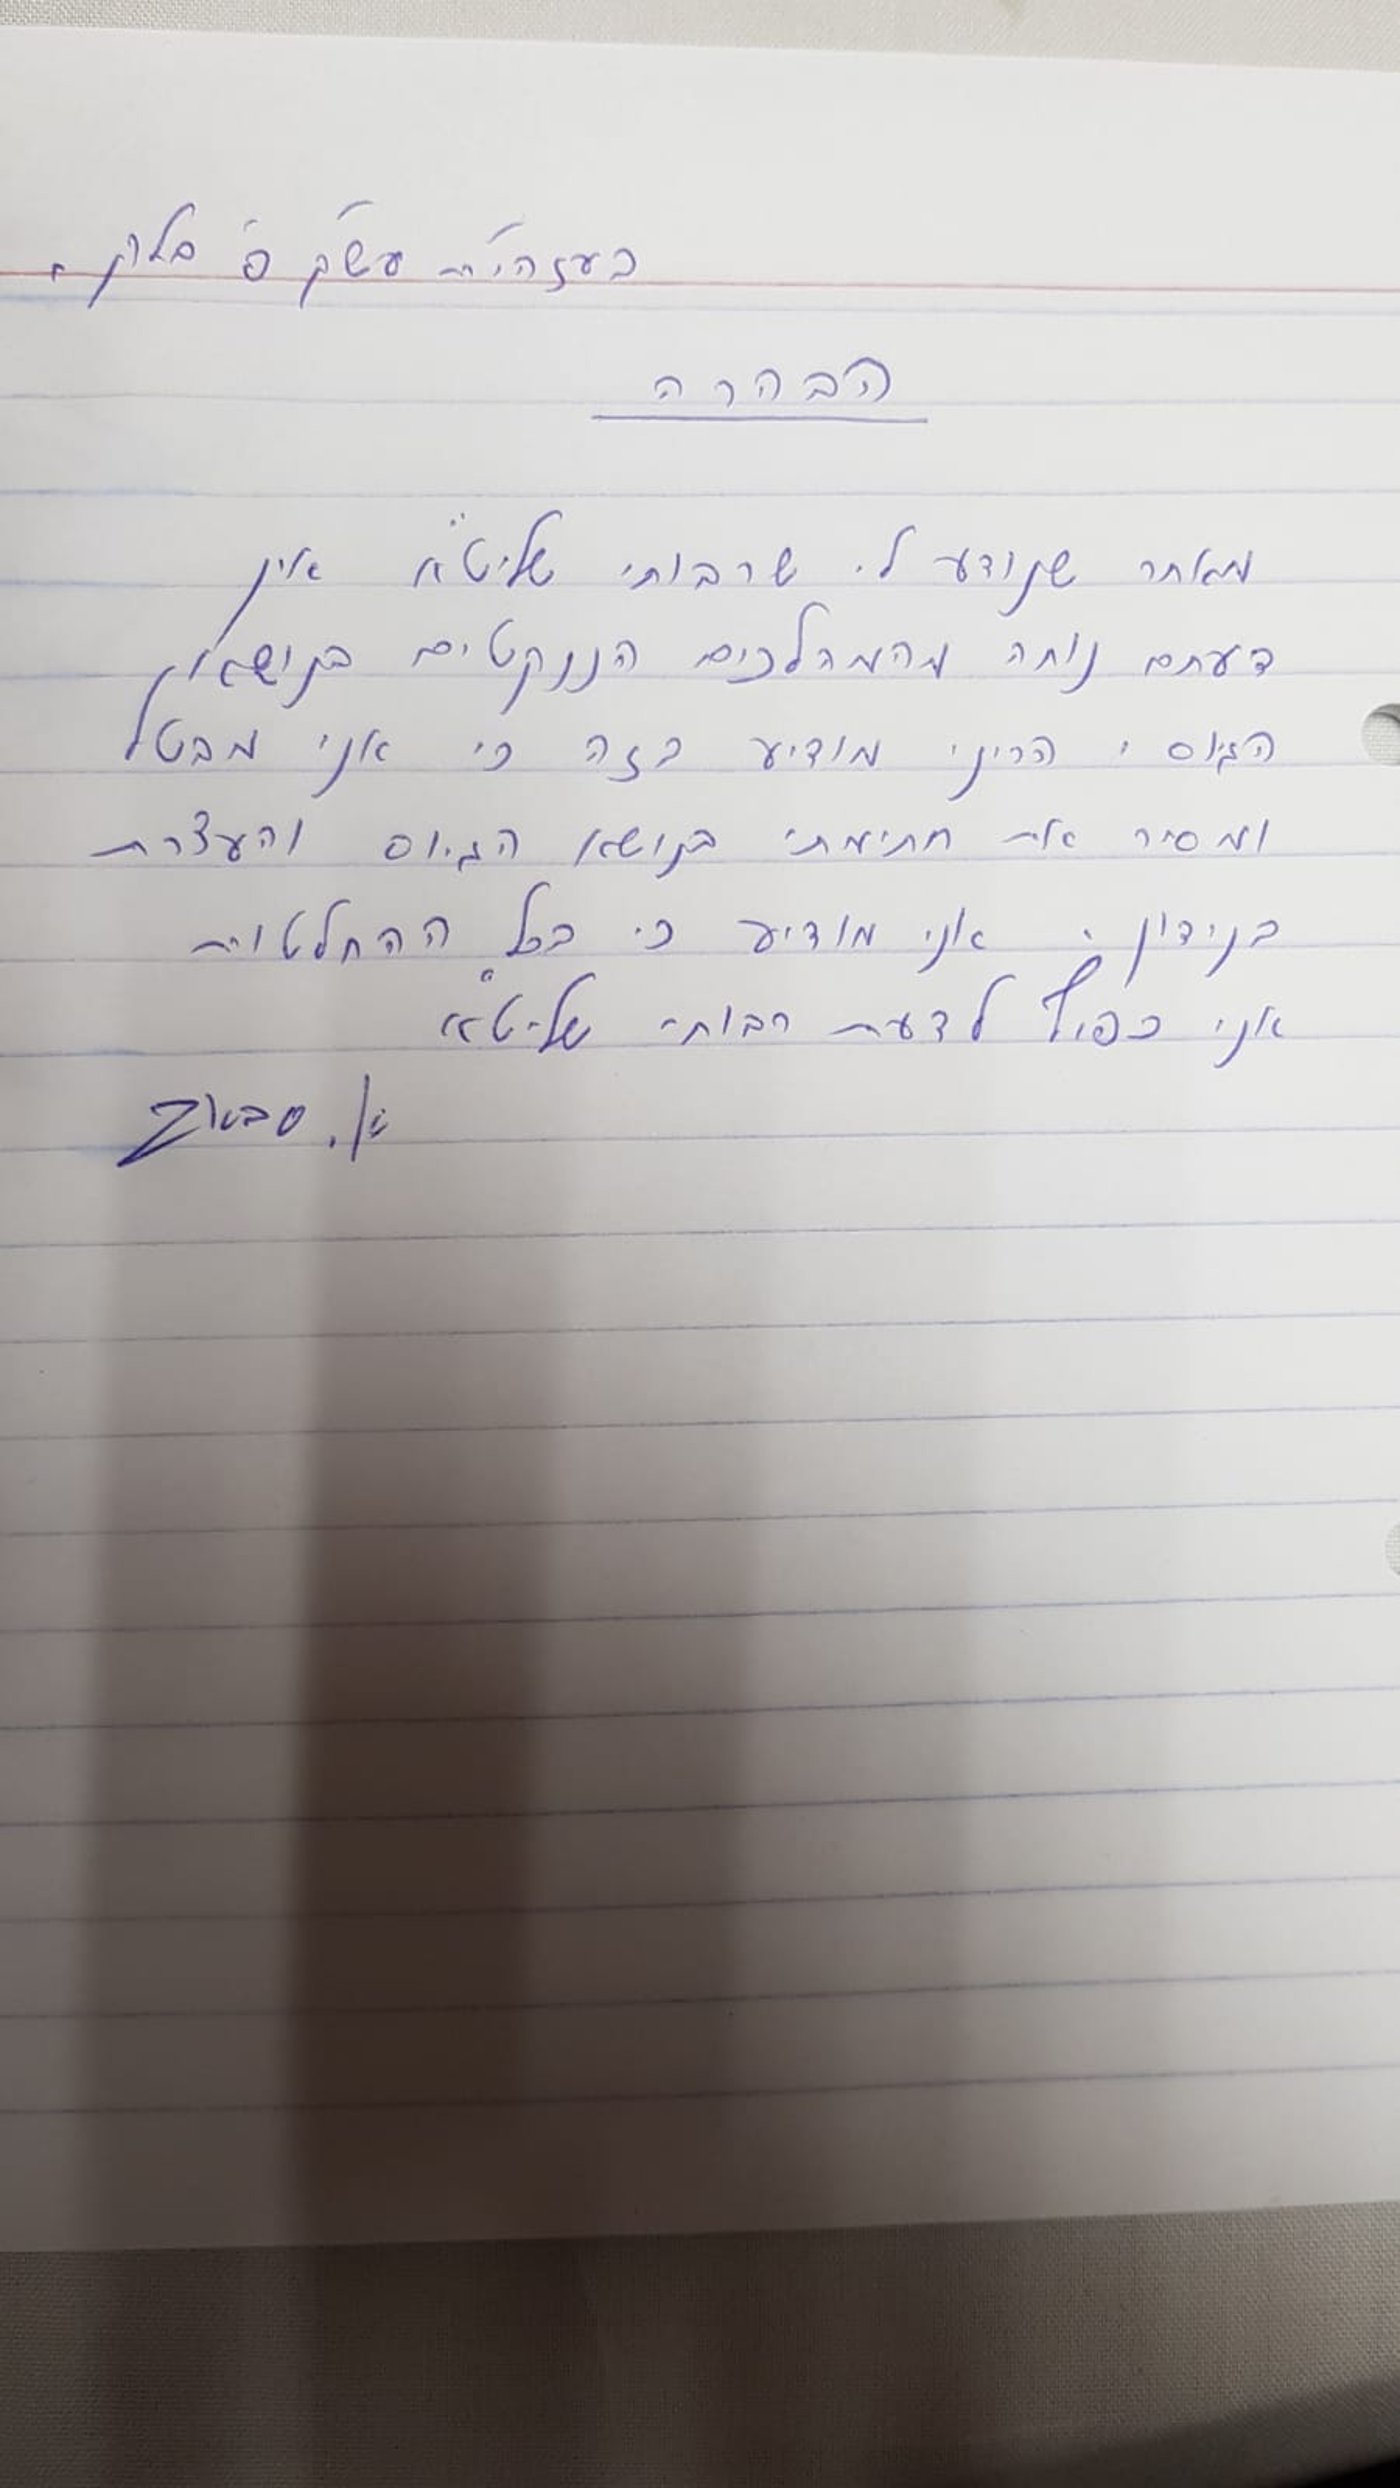 בעזהי״ת עש״ק פ' בלק.
הבהרה
מאחר שנודע לי שרבותי שליט״א אין
דעתם נוחה מהמהלכים הננקטים בנושא
הגיוס, הריני מודיע בזה כי אני מבטל
ומסיר את חתימתי בנושא הגיוס והעצרת
בנידון. אני מודיע כי בכל ההחלטות
אני כפוף לדעת רבותי שליט״א